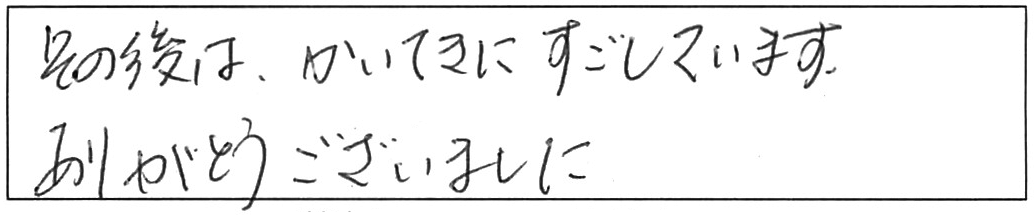 その後は、かいてきにすごしています。
ありがとうございました